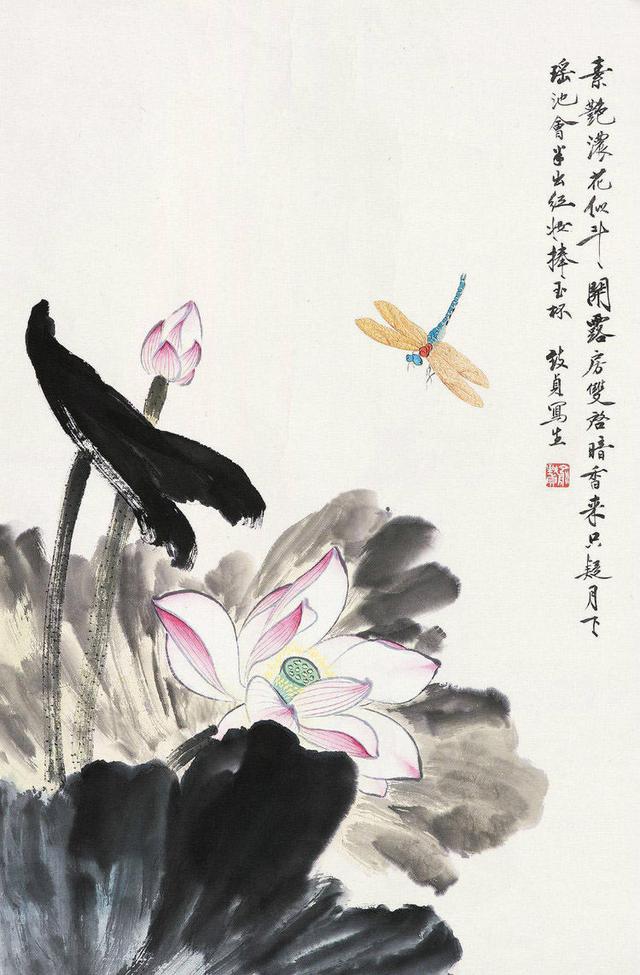 素艷濃花似斗開露房雙啓暗香来只疑月下
瑶池會半出红妝捧玉杯 貞寫生